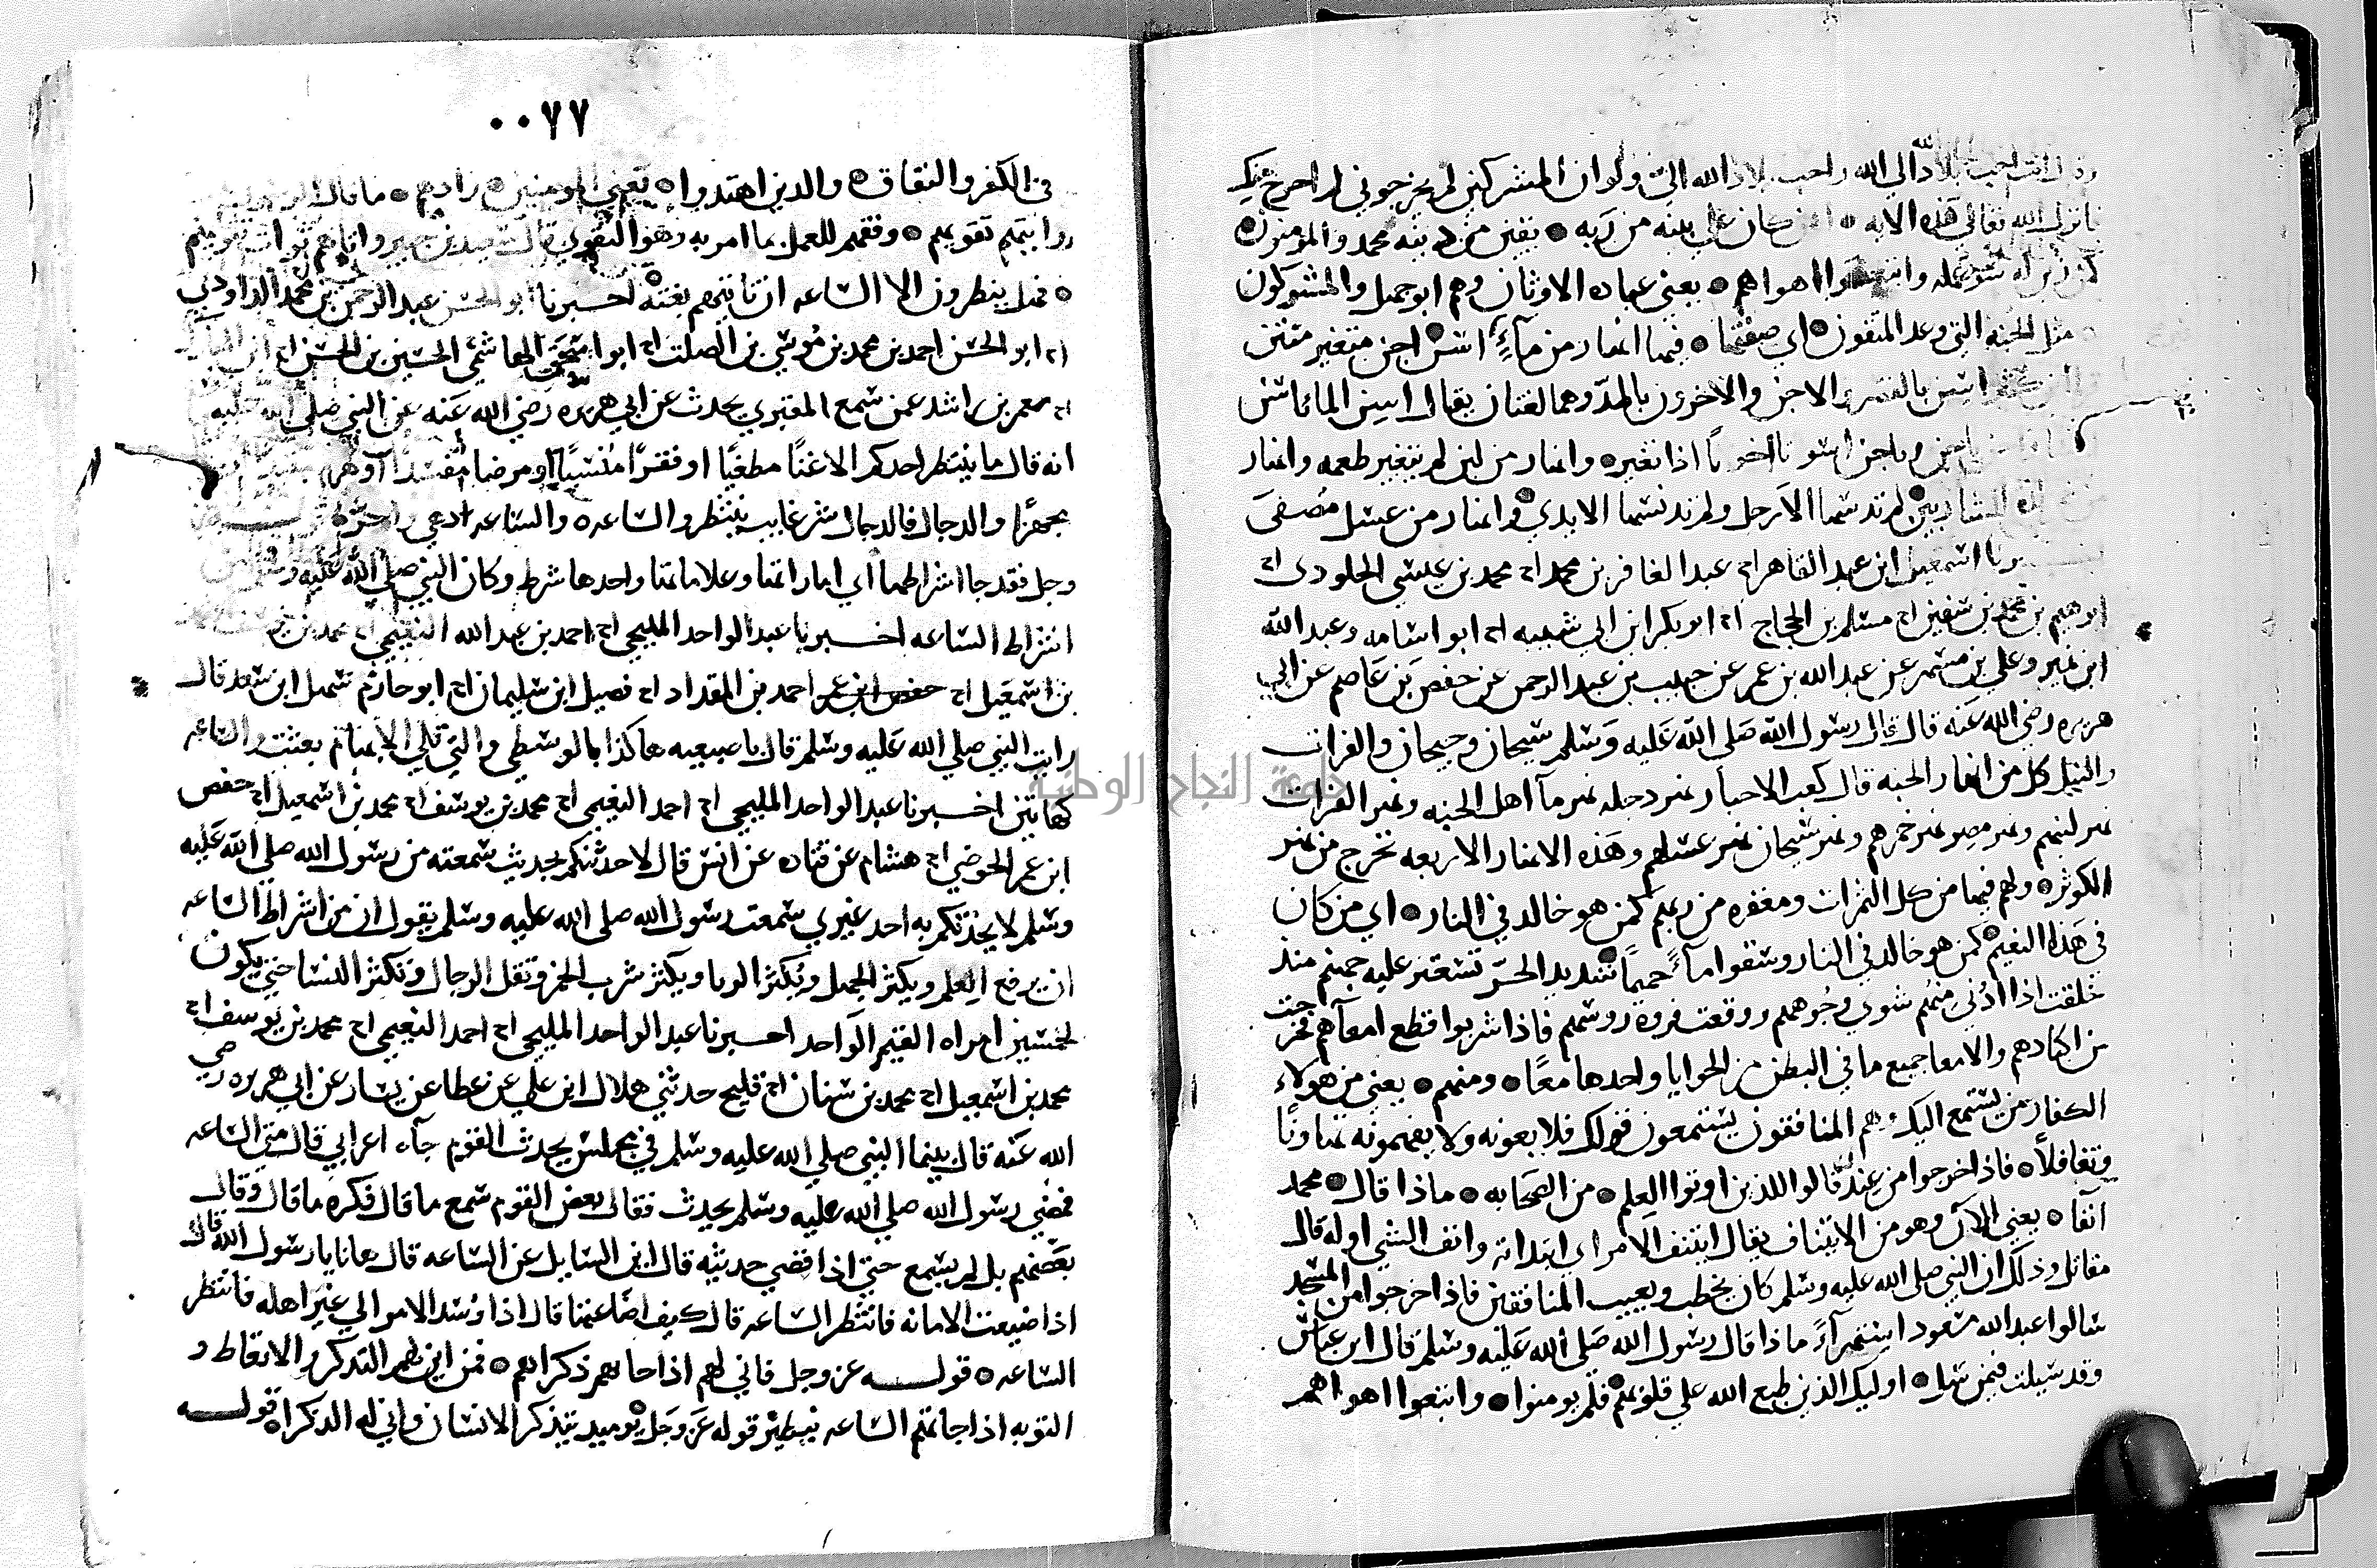 الله الى الله واحب بلاد الله الى ولو ان المشركين لم يخرجوني لم اخرج منك
فانزل الله تعالى هذه الايه ٥ افمن كان على بينه من ربه ٥ يقين من دينه محمد والمومنون ٥
كمن زين له سو عمله واتبعوا اهواهم ٥ يعني عباده الاوثان وهم ابو جهل والمشركون
مثل الجنه التي وعد المتقون ٥ اي صفتها ٥ فيها انهار من ماءٍ اسن ٥ اجن متغير منتن
اسن بالقصر والاخرون بالمدّ وهما لغتان يقال اسن الما ياسن
وياجن اسونا واجونا اذا تغير ٥ وانهار من لبن لم يتغير طعمه وانهار
للشاربين ٥ لم تدسها الارجل ولم تدنسها الايدي ٥ وانهار من عسل مصفى
اسمعيل ابن عبد القاهر اح عبد الغافر بن محمد اح محمد بن عيسى الجلودى اح
ابرهيم بن محمد بن سفين اح مسلم بن الحجاج اح ابو بكر ابن ابي شيبه اح ابو اسامه وعبد الله
ابن نمير وعلي بن مسهر عن عبد الله بن عمر عن حبيب بن عبد الرحمن عن حفص بن عاصم عن ابي
هريره رضي الله عنه قال قال رسول الله صلى الله عليه وسلم سيحان وجيحان والفرات
والنيل كل من انهار الجنه قال كعب الاحبار نهر دجله نهر ماء اهل الجنه ونهر الفرات
نهر لبنهم ونهر مصر نهر خمرهم ونهر سيحان نهر عسلهم وهذه الانهار الاربعه تخرج من نهر
الكوثر ٥ ولهم فيها من كل الثمرات ومغفره من ربهم كمن هو خالد في النار ٥ اي من كان
في هذا النعيم كمن هو خالد في النار وسقوا ماءً حميمًا ٥ شديد الحرّ تسعر عليه جهنم منذ
خلقت اذا ادني منهم شوى وجوههم ووقعت فروه روسهم فاذا شربوا قطع امعآهم فخرجت
من ادبارهم والامعا جميع ما في البطن من الحوايا واحدها معًا ٥ ومنهم ٥ يعني من هولاء
الكفار من يستمع اليك ٥ هم المنافقون يستمعون قولك فلا يعونه ولا يفهمونه تهاونًا
وتغافلاً ٥ فاذا خرجوا من عندك قالوا للذين اوتوا العلم ٥ من الصحابه ٥ ماذا قال ٥ محمد
آنفا ٥ يعني الآن وهو من الايتناف يقال ايتنف الامر اي ابتداته وانف الشي اوله قال
مقاتل وذلك ان النبي صلى الله عليه وسلم كان يخطب ويعيب المنافقين فاذا خرجوا من المسجد
سالوا عبد الله مسعود استهزآءً ماذا قال رسول الله صلى الله عليه وسلم قال ابن عباس
وقد سيلت فيمن سيل ٥ اوليك الذين طبع الله على قلوبهم فلم يومنوا ٥ واتبعوا اهواهم
٠٠٧٧
في الكفر والنفاق ٥ والذين اهتدوا ٥ يعني المومنين ٥ زادهم ٥ ما قال
واتيهم تقويهم ٥ وفقهم للعمل بما امر به وهو التقوى قال سعيد بن جبير واتاهم ثواب تقويهم
٥ فهل ينظرون الا الساعه ان تاتيهم بغته ٥ اخبرنا ابو الحسن عبد الرحمن بن محمد الداودي
اح ابو الحسن احمد بن محمد بن موسي بن الصلت اح ابو اسحق الهاشمي الحسين بن الحسن اح ابن المبارك
اح معمر بن راشد عمن سمع المقبري يحدث عن ابي هريره رضي الله عنه عن النبي صلى الله عليه
انه قال ما ينتظر احدكم الا غنًا مطغيًا او فقرًا منسيًا او مرضا مفسدًا او هرما
مجهزا والدجال فالدجال شر غايب ينتظر والساعه ٥ والساعه ادهي وامر ٥
وجل فقد جا اشراطها اي اماراتها وعلاماتها واحدها شرط وكان النبي صلى الله عليه وسلم
اشراط الساعه اخبرنا عبد الواحد المليحي اح احمد بن عبد الله النعيمي اح محمد بن
بن اسمعيل اح احمد بن المقداد اح فضيل ابن سليمان اح ابو حازم سهل ابن سعد قال
رايت النبي صلى الله عليه وسلم قال باصبعيه هاكذا بالوسطي والتي تلي الابهام بعثت والساعه
كهاتين اخبرنا عبد الواحد المليحي اح احمد النعيمي اح محمد بن يوسف اح محمد بن اسمعيل اح حفص
ابن عمر الحوضي اح هشام عن قتاده عن انس قال لاحدثنكم بحديث سمعته من رسول الله صلى الله عليه
وسلم لا يحدثكم به احد غيري سمعت رسول الله صلى الله عليه وسلم يقول ان من اشراط الساعه
ان يرفع العلم ويكثر الجهل ويكثر الربا ويكثر شرب الخمر وتقل الرجال وتكثر النسا حتي يكون
لخمسين امراه القيم الواحد اخبرنا عبد الواحد المليحي اح احمد النعيمي اح محمد بن يوسف اح
محمد بن اسمعيل اح محمد بن سنان اح فليح حدثني هلال ابن علي عن عطا عن يسار عن ابي هريره رضي
الله عنه قال بينما النبي صلى الله عليه وسلم في مجلس يحدث القوم جآء اعرابي قال متى الساعه
فمضي رسول الله صلى الله عليه وسلم يحدث فقال بعض القوم سمع ما قال فكره ما قال وقال
بعضهم بل لم يسمع حتي اذا قضي حديثه قال اين السايل عن الساعه قال ها انا يا رسول الله قال
اذا ضيعت الامانه فانتظر الساعه قال كيف اضاعتها قال اذا وسد الامر الي غير اهله فانتظر
الساعه ٥ قوله عز وجل فاني لهم اذا جاتهم ذكراهم ٥ فمن اين لهم التذكر والاتعاظ و
التوبه اذا جاتهم الساعه نظير قوله عز وجل يوميذ يتذكر الانسان واني له الذكرا ٥ قوله
جامعة النجاح الوطنية